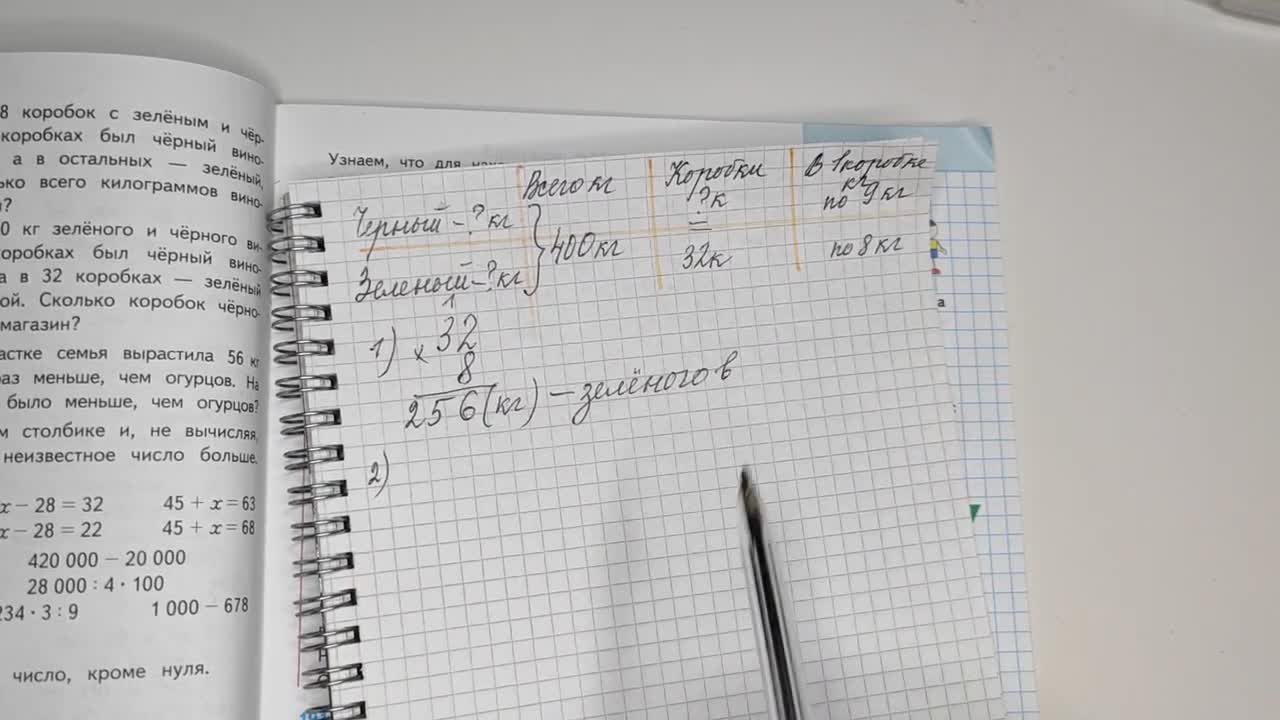 8 коробок с зелёным и чёр-
коробках был чёрный вино-
а в остальных — зелёный,
ько всего килограммов вино-
а?
0 кг зелёного и чёрного ви-
коробках был чёрный вино-
а в 32 коробках — зелёный
ой. Сколько коробок чёрно-
магазин?
астке семья вырастила 56 кг
раз меньше, чем огурцов. На
было меньше, чем огурцов?
м столбике и, не вычисляя,
неизвестное число больше.
x − 28 = 32 45 + x = 63
x − 28 = 22 45 + x = 68
420 000 − 20 000
28 000 : 4 · 100
234 · 3 : 9 1 000 − 678
число, кроме нуля.
Узнаем, что для
Всего кг Коробки В 1 коробке кг
Черный – ? кг ?к по 9 кг
400 кг
Зеленый – ? кг 32к по 8 кг
1
1) × 32
8
256 (кг) – зелёного в
2)
а